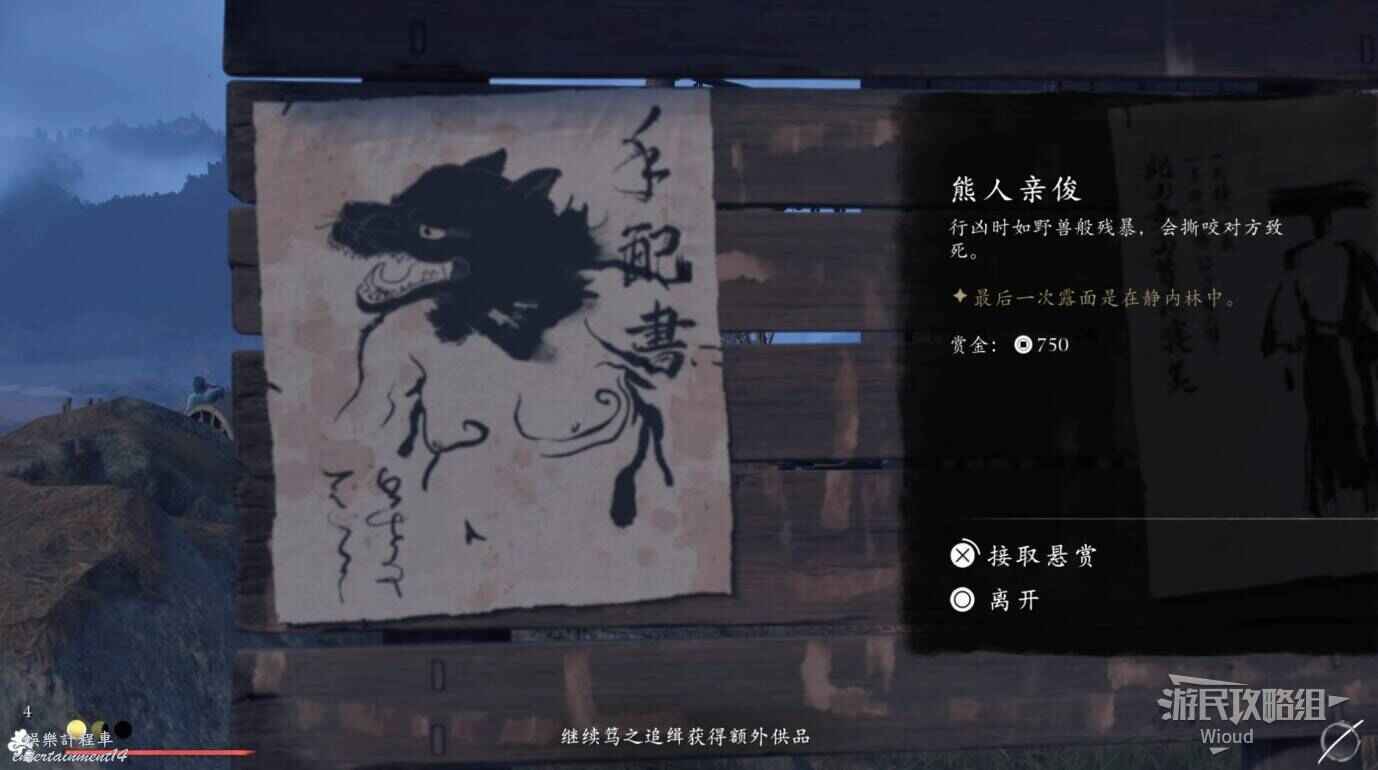 手配書
熊人亲俊
行凶时如野兽般残暴，会撕咬对方致
死。
最后一次露面是在静内林中。
赏金：750
接取悬赏
离开
4
娛樂計程車
entertainment14
继续笃之追缉获得额外供品
游民攻略组
Wioud